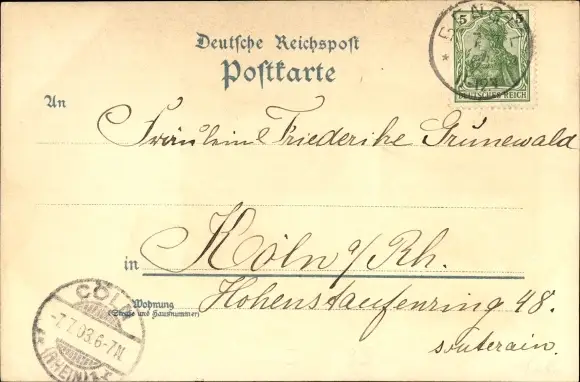 Deutsche Reichspost
Postkarte
5 5
DEUTSCHES REICH
An
Fräulein Friederike Grünewald
in Köln a/Rh.
Wohnung
(Straße und Hausnummer)
Hohenstaufenring 48.
souterain.
CÖLN
-7.7.03.6-7N.
(RHEIN) 1